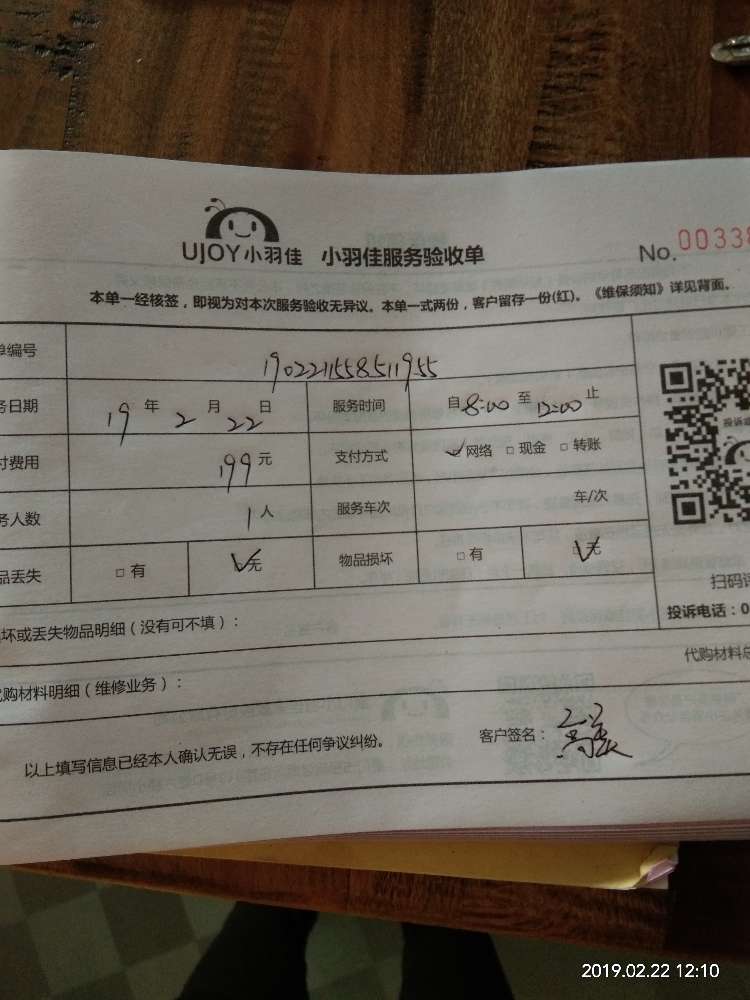 UJOY小羽佳 小羽佳服务验收单 No. 00338
本单一经核签，即视为对本次服务验收无异议。本单一式两份，客户留存一份(红)。《维保须知》详见背面。
单编号 1902211558511955
务日期 19 年 2 月 22 日 服务时间 自 8:00 至 12:00 止
付费用 199 元 支付方式 网络 □ 现金 □ 转账
务人数 1 人 服务车次 车/次
品丢失 □ 有 无 物品损坏 □ 有 □ 无
扫码评
投诉电话：0
坏或丢失物品明细（没有可不填）：
代购材料总
代购材料明细（维修业务）：
以上填写信息已经本人确认无误，不存在任何争议纠纷。 客户签名：
2019.02.22 12:10